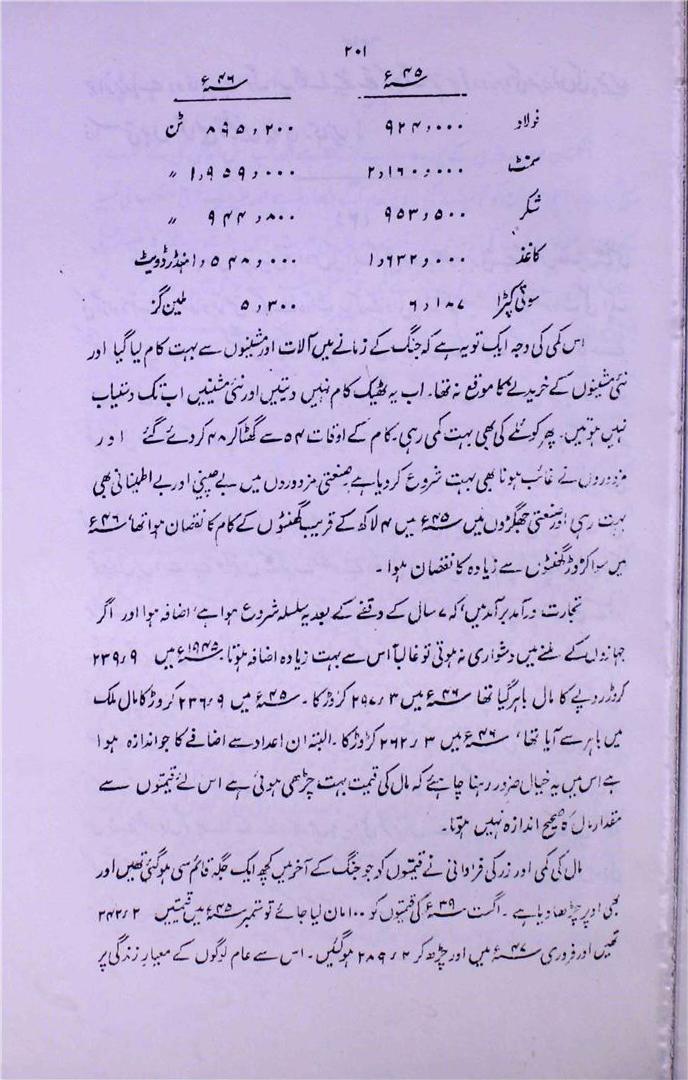 ۲۰۱
۴۵ء ۴۶ء
فولاد ۹۲۴،۰۰۰ ۸۹۵،۲۰۰ ٹن
سمنٹ ۲،۱۶۰،۰۰۰ ۱،۹۵۹،۰۰۰ 〃
شکر ۹۵۳،۵۰۰ ۹۴۴،۸۰۰ 〃
کاغذ ۱،۶۳۲،۰۰۰ ۱،۵۴۸،۰۰۰ ہنڈرڈویٹ
سوتی کپڑا ۶،۱۸۷ ۵،۳۰۰ ملین گز
اس کمی کی وجہ ایک تو یہ ہے کہ جنگ کے زمانے میں آلات اور مشینوں سے بہت کام لیا گیا اور
نئی مشینوں کے خریدنے کا موقع نہ تھا۔ اب یہ ٹھیک کام نہیں دیتیں اور نئی مشینیں اب تک دستیاب
نہیں ہوتیں۔ پھر کوئلے کی بھی بہت کمی رہی۔ کام کے اوقات ۵۴ سے گھٹا کر ۴۸ کر دئے گئے اور
مزدوروں نے غائب ہونا بھی بہت شروع کر دیا ہے صنعتی مزدوردں میں بے چینی اور بے اطمینانی بھی
بہت رہی اور صنعتی جھگڑوں میں ۴۵ء میں ۴ لاکھ کے قریب گھنٹوں کے کام کا نقصان ہوا تھا، ۴۶ء
میں سوا کروڑ گھنٹوں سے زیادہ کا نقصان ہوا۔
تجارت درآمد برآمد میں، کہ ۷ سال کے وقفے کے بعد یہ سلسلہ شروع ہوا ہے، اضافہ ہوا اور اگر
جہازوں کے ملنے میں دشواری نہ ہوتی تو غالباً اس سے بہت زیادہ اضافہ ہوتا ۱۹۴۵ء میں ۲۳۹٫۹
کروڑ روپے کا مال باہر گیا تھا ۴۶ء میں ۲۹۷٫۳ کروڑ کا۔ ۴۵ء میں ۲۳۶٫۹ کروڑ کا مال ملک
میں باہر سے آیا تھا، ۴۶ء میں ۲۶۲٫۳ کروڑ کا۔ البتہ ان اعداد سے اضافے کا جو اندازہ ہوا
ہے اس میں یہ خیال ضرور رہنا چاہئے کہ مال کی قیمت بہت چڑھی ہوئی ہے اس لئے قیمتوں سے
مقدار مال کا صحیح اندازہ نہیں ہوتا۔
مال کی کمی اور زر کی فراوانی نے قیمتوں کو جو جنگ کے آخر میں کچھ ایک جگہ قائم سی ہو گئی تھیں اور
بھی اوپر چڑھا دیا ہے۔ اگست ۳۹ء کی قیمتوں کو ۱۰۰ مان لیا جائے تو ستمبر ۴۵ء میں قیمتیں ۲۴۲٫۲
تھیں اور فروری ۴۷ء میں اور چڑھ کر ۲۸۹٫۲ ہو گئیں۔ اس سے عام لوگوں کے معیار زندگی پر